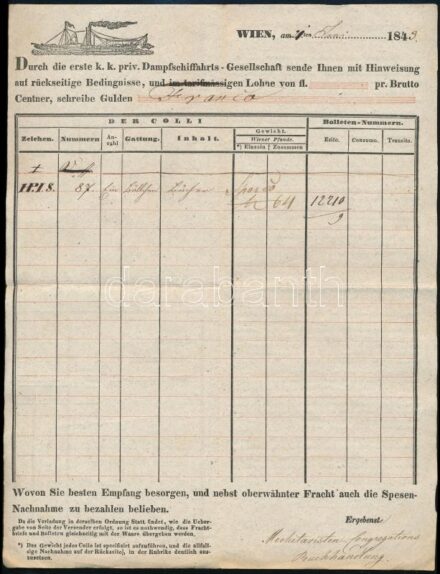 WIEN, am 7ten Juni 1843.
Durch die erste k. k. priv. Dampfschiffahrts - Gesellschaft sende Ihnen mit Hinweisung
auf rückseitige Bedingnisse, und im tarifmässigen Lohne von fl. pr. Brutto
Centner, schreibe Gulden Franco
DER COLLI
Bolleten-Nummern.
Zeichen. Nummern An-zahl Gattung. Inhalt. Gewicht. Wiener Pfunde. *) Einzeln Zusammen Esito. Consumo. Transito.
87. Ein Bücher Sporco
64 12210
9
darabanth
Wovon Sie besten Empfang besorgen, und nebst oberwähnter Fracht auch die Spesen-
Nachnahme zu bezahlen belieben.
Da die Verladung in derselben Ordnung Statt findet, wie die Ueber-
gabe von Seite der Versender erfolgt, so ist es nothwendig, dass Fracht-
briefe und Bolleten gleichzeitig mit der Waare übergeben werden.
*) Das Gewicht jedes Collo ist specifisirt aufzuführen, und die allfäl-
lige Nachnahme auf der Rückseite, in der Rubrike deutlich anzu-
setzen.
Ergebenst
Mechitaristen-Congregations
Buchhandlung.